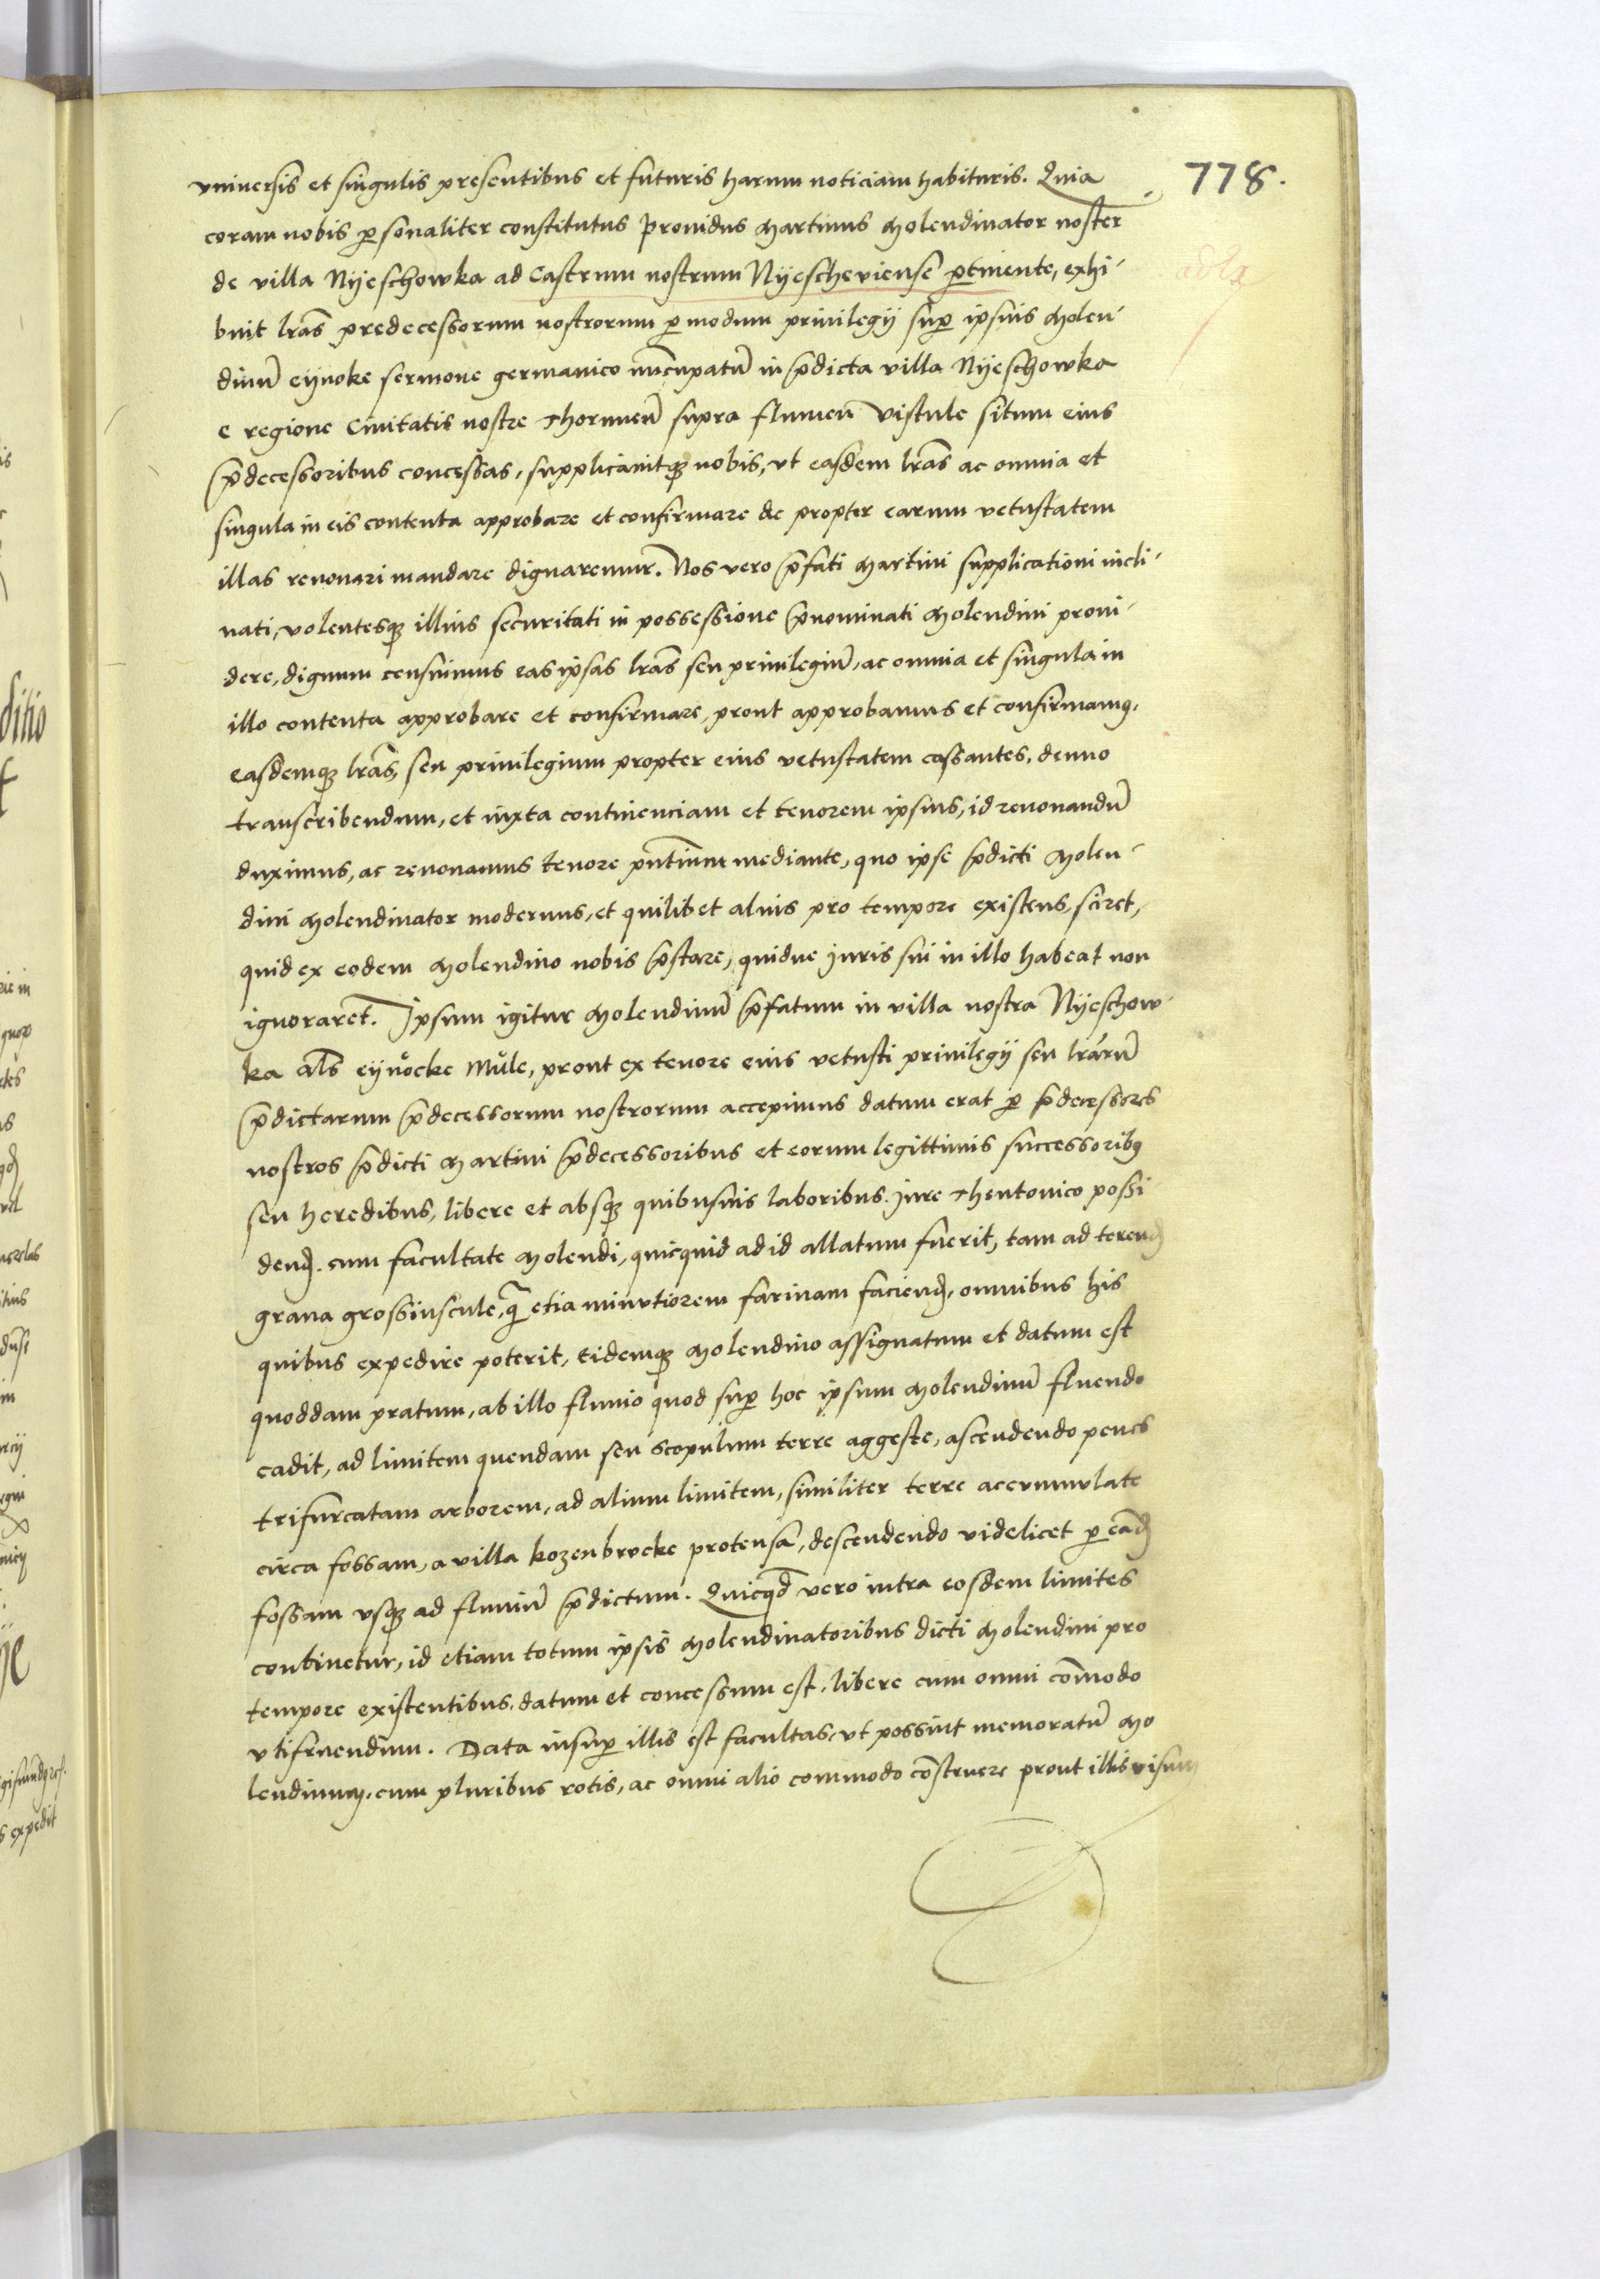 778.
vniuersis et singulis presentibus et futuris harum noticiam habituris. Quia
coram nobis p̱sonaliter constitutus Prouidus Martinus Molendinator noster
de villa Nyeschowka ad Castrum nostrum Nyescheuiense p̱tinente, exhi-
buit lr̄as predecessorum nostrorum p̱ modum priuilegij sup̱ ipsius Molen-
dinū eynoke sermone germanico nūcupatū in p̄dicta villa Nyeschowka
e regione Ciuitatis nostre Thorunen̄ supra flumen Vistule situm eius
p̄decessoribus concessas, supplicauitqȝ nobis, vt easdem lr̄as ac omnia et
singula in eis contenta approbare et confirmare de propter earum vetustatem
illas renouari mandare dignaremur. Nos vero p̄fati Martini supplicationi incli-
nati, volentesqȝ illius securitati in possessione p̄nominati Molendini proui-
dere, dignum censuimus eas ipsas lr̄as seu priuilegiū, ac omnia et singula in
illo contenta approbare et confirmare, prout approbamus et confirmamꝰ.
easdemqȝ lr̄as, seu priuilegium propter eius vetustatem cassantes, denuo
transcribendum, et iuxta continenciam et tenorem ipsius, id renouandū
duximus, ac renouamus tenore pn̄tium mediante, quo ipse p̄dicti Molen-
dini Molendinator modernus, et quilibet alius pro tempore existens, sciret,
quid ex eodem Molendino nobis p̄stare, quidue Juris sui in illo habeat non
ignoraret. Ipsum igitur Molendinū p̄fatum in villa nostra Nyeschow-
ka als̄ eynocke Mule, prout ex tenore eius vetusti priuilegij seu lr̄arū
p̄dictarum p̄decessorum nostrorum accepimus datum erat p̱ p̄decessores
nostros p̄dicti Martini p̄decessoribus et eorum legittimis successoribꝰ
seu heredibus, libere et absqȝ quibusuis laboribus. Jure Theutonico possi
dend̄. cum facultate Molendi, quicquid ad id allatum fuerit, tam ad terend̄
grana grossiuscule, q̄ etia minutiorem farinam faciend̄, omnibus his
quibus expedire poterit, eidemqȝ Molendino assignatum et datum est
quoddam pratum, ab illo fluuio quod sup̱ hoc ipsum Molendinū fluendo
cadit, ad limitem quendam seu scopulum terre aggeste, ascendendo penes
trifurcatam arborem, ad alium limitem, similiter terre accumulate
circa fossam, a villa kozenbrocke protensa, descendendo videlicet p̱ eand̄
fossam vsqȝ ad fluuiū p̄dictum. Quicqd̄ vero intra eosdem limites
continetur, id etiam totum ipsis Molendinatoribus dicti Molendini pro
tempore existentibus, datum et concessum est, libere cum omni com̄odo
vtifruendum. Data insup̱ illis est facultas, vt possint memoratū Mo
lendinum, cum pluribus rotis, ac omni alio commodo cōstruere prout illis visum